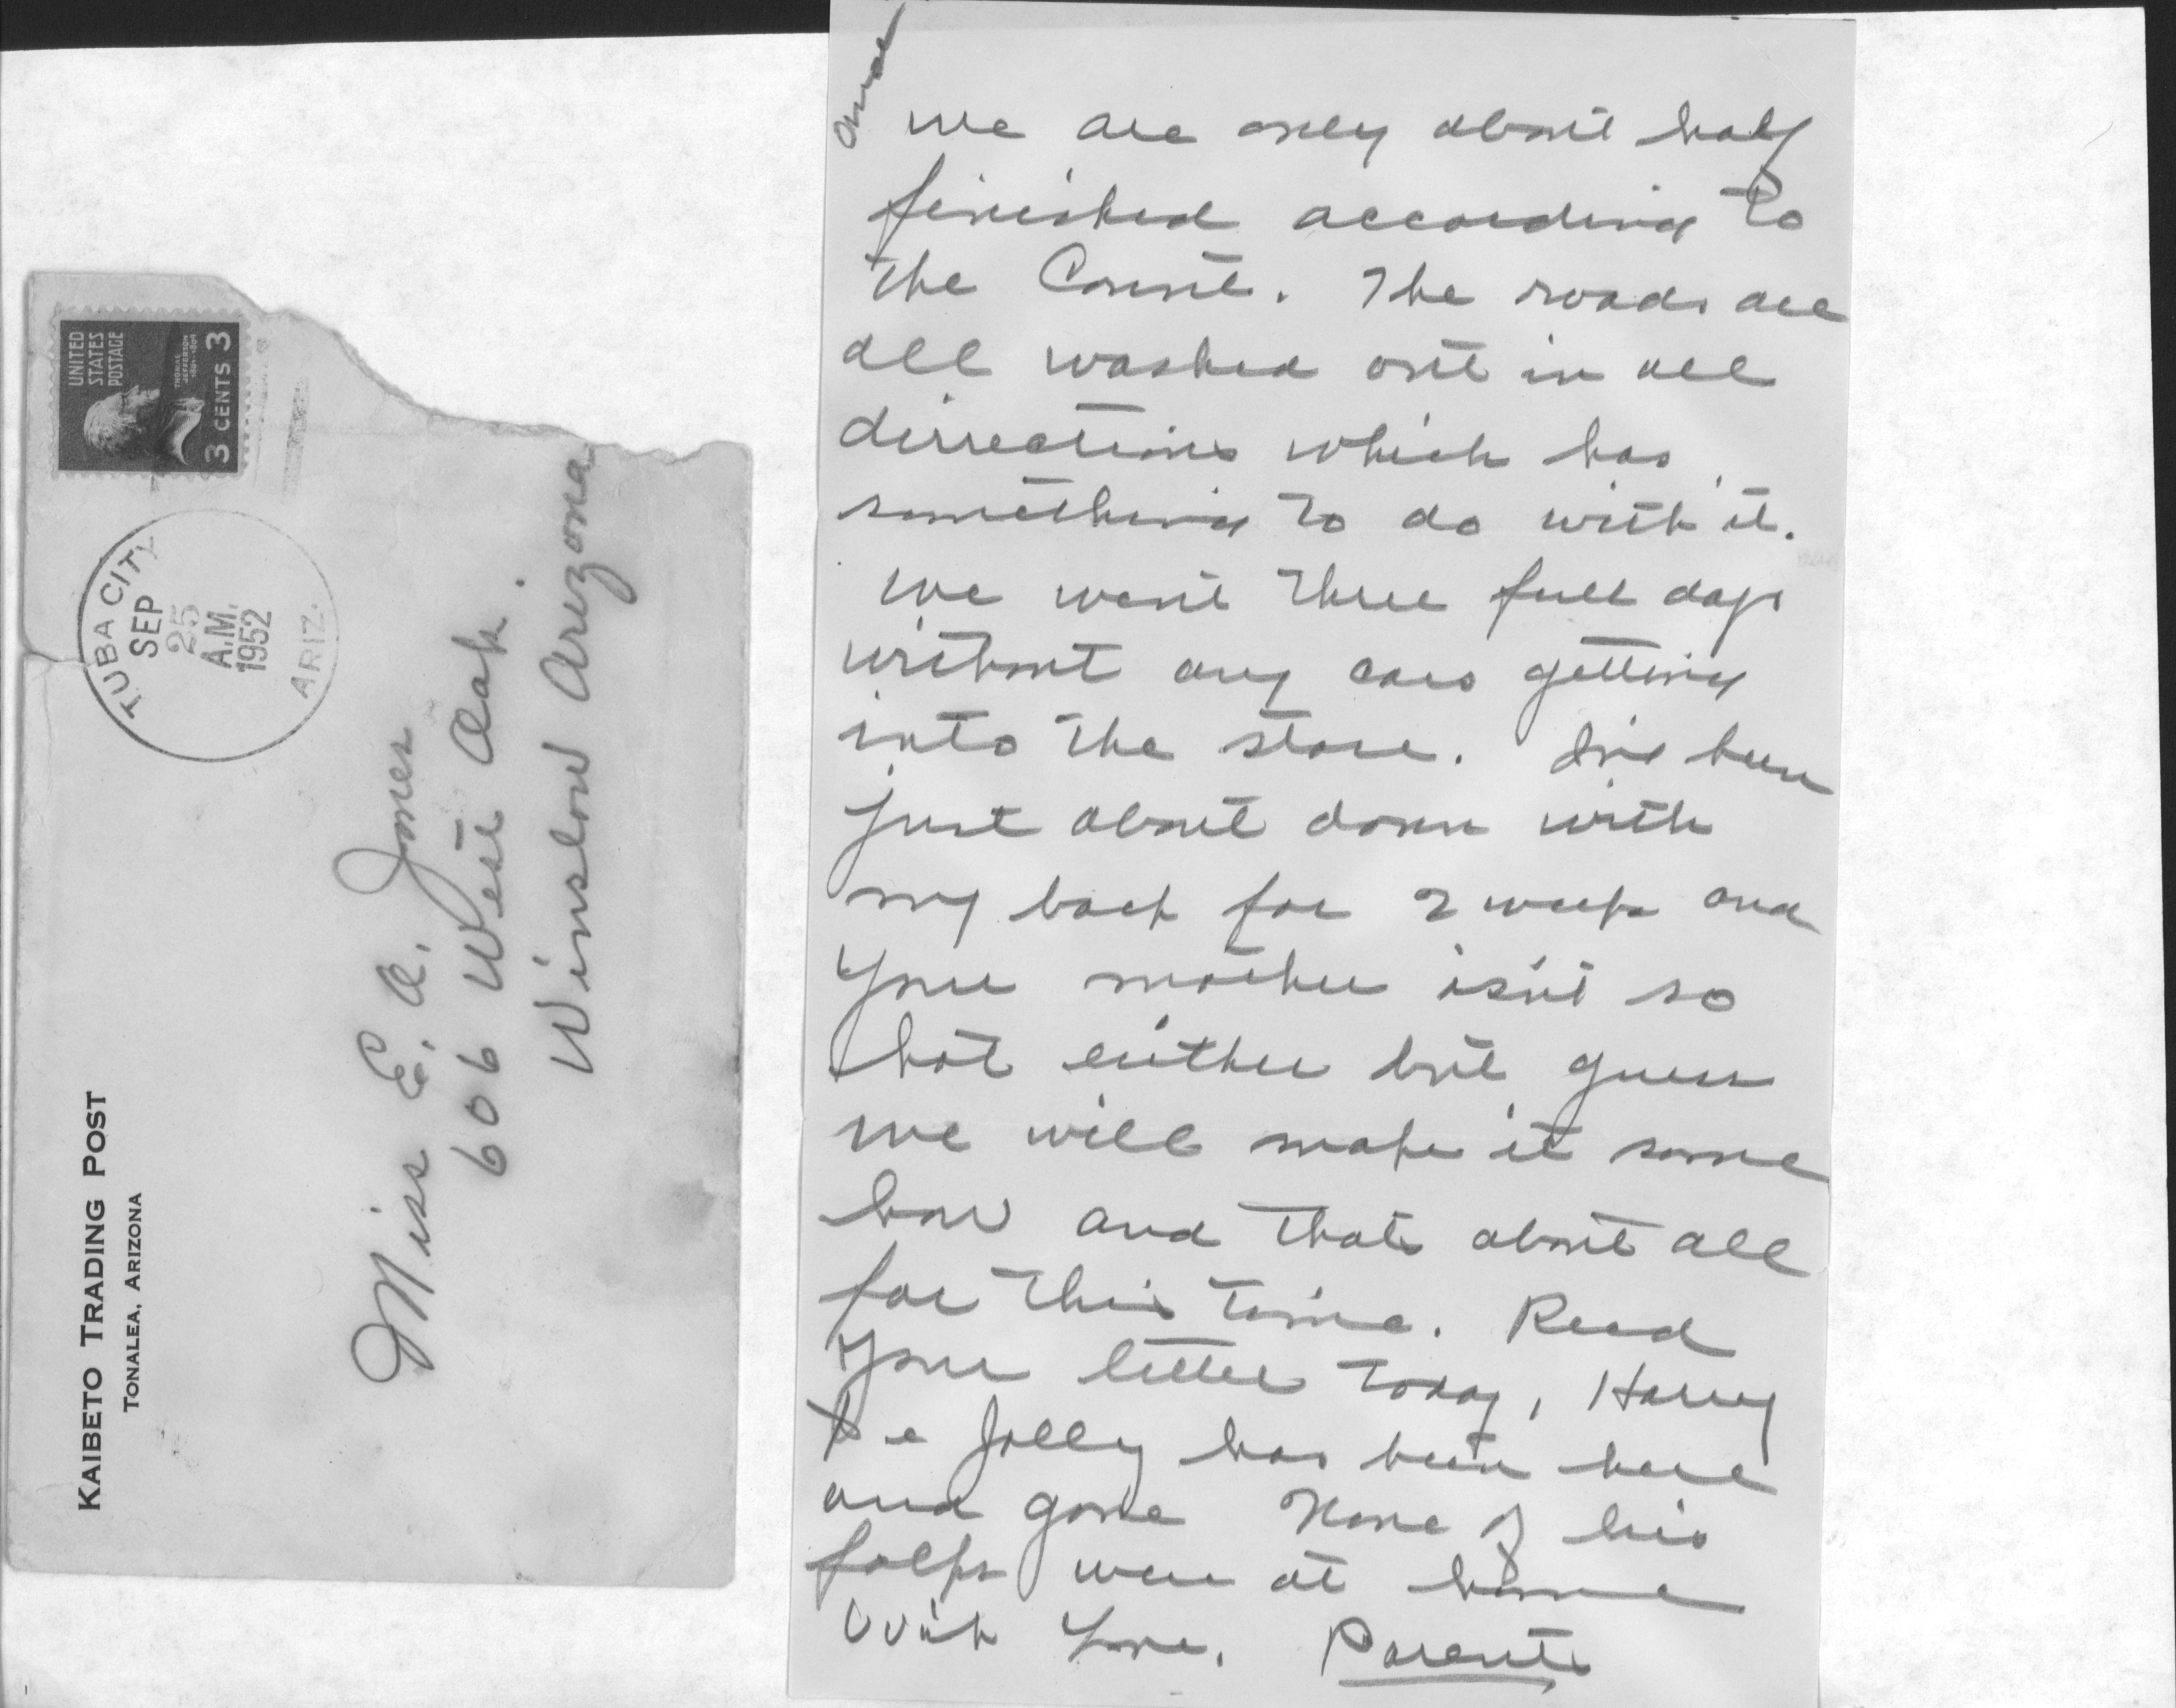 KAIBETO TRADING POST
TONALEA, ARIZONA
UNITED
STATES
POSTAGE
THOMAS
JEFFERSON
1801-1809
3 CENTS 3
TUBA CITY
SEP
25
A.M.
1952
ARIZ.
Miss E. A. Jones
606 West Oak.
Winslow Arizona
and
we are only about half
finished according to
the Count. The roads are
all washed out in all
dirrections which has
something to do with it.
we went three full days
without any cars getting
into the store. I've been
just about down with
my back for 2 weeks and
your mother isn't so
hot either but guess
we will make it some
how and thats about all
for this time. Recd
your letter today, Harry
De Jolly has been here
and gone None of his
folks were at home
With Love. Parents